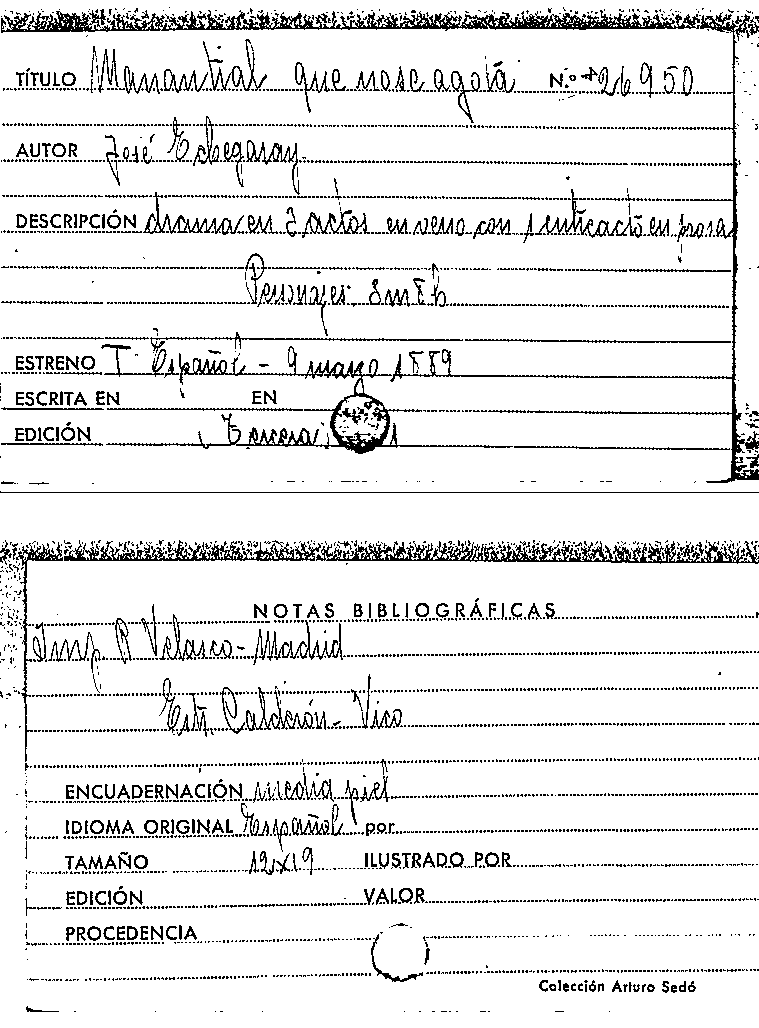 TÍTULO Manantial que no se agota N.º 26950
AUTOR José Echegaray
DESCRIPCIÓN drama en 3 actos en verso con 1 entreacto en prosa
Personajes 8m 8h
ESTRENO T. Español - 9 marzo 1889
ESCRITA EN EN
EDICIÓN Tercera
NOTAS BIBLIOGRÁFICAS
Imp. R Velasco - Madrid
Estr. Calderón - Vico
ENCUADERNACIÓN media piel
IDIOMA ORIGINAL Español por
TAMAÑO 12x19 ILUSTRADO POR
EDICIÓN VALOR
PROCEDENCIA
Colección Arturo Sedó